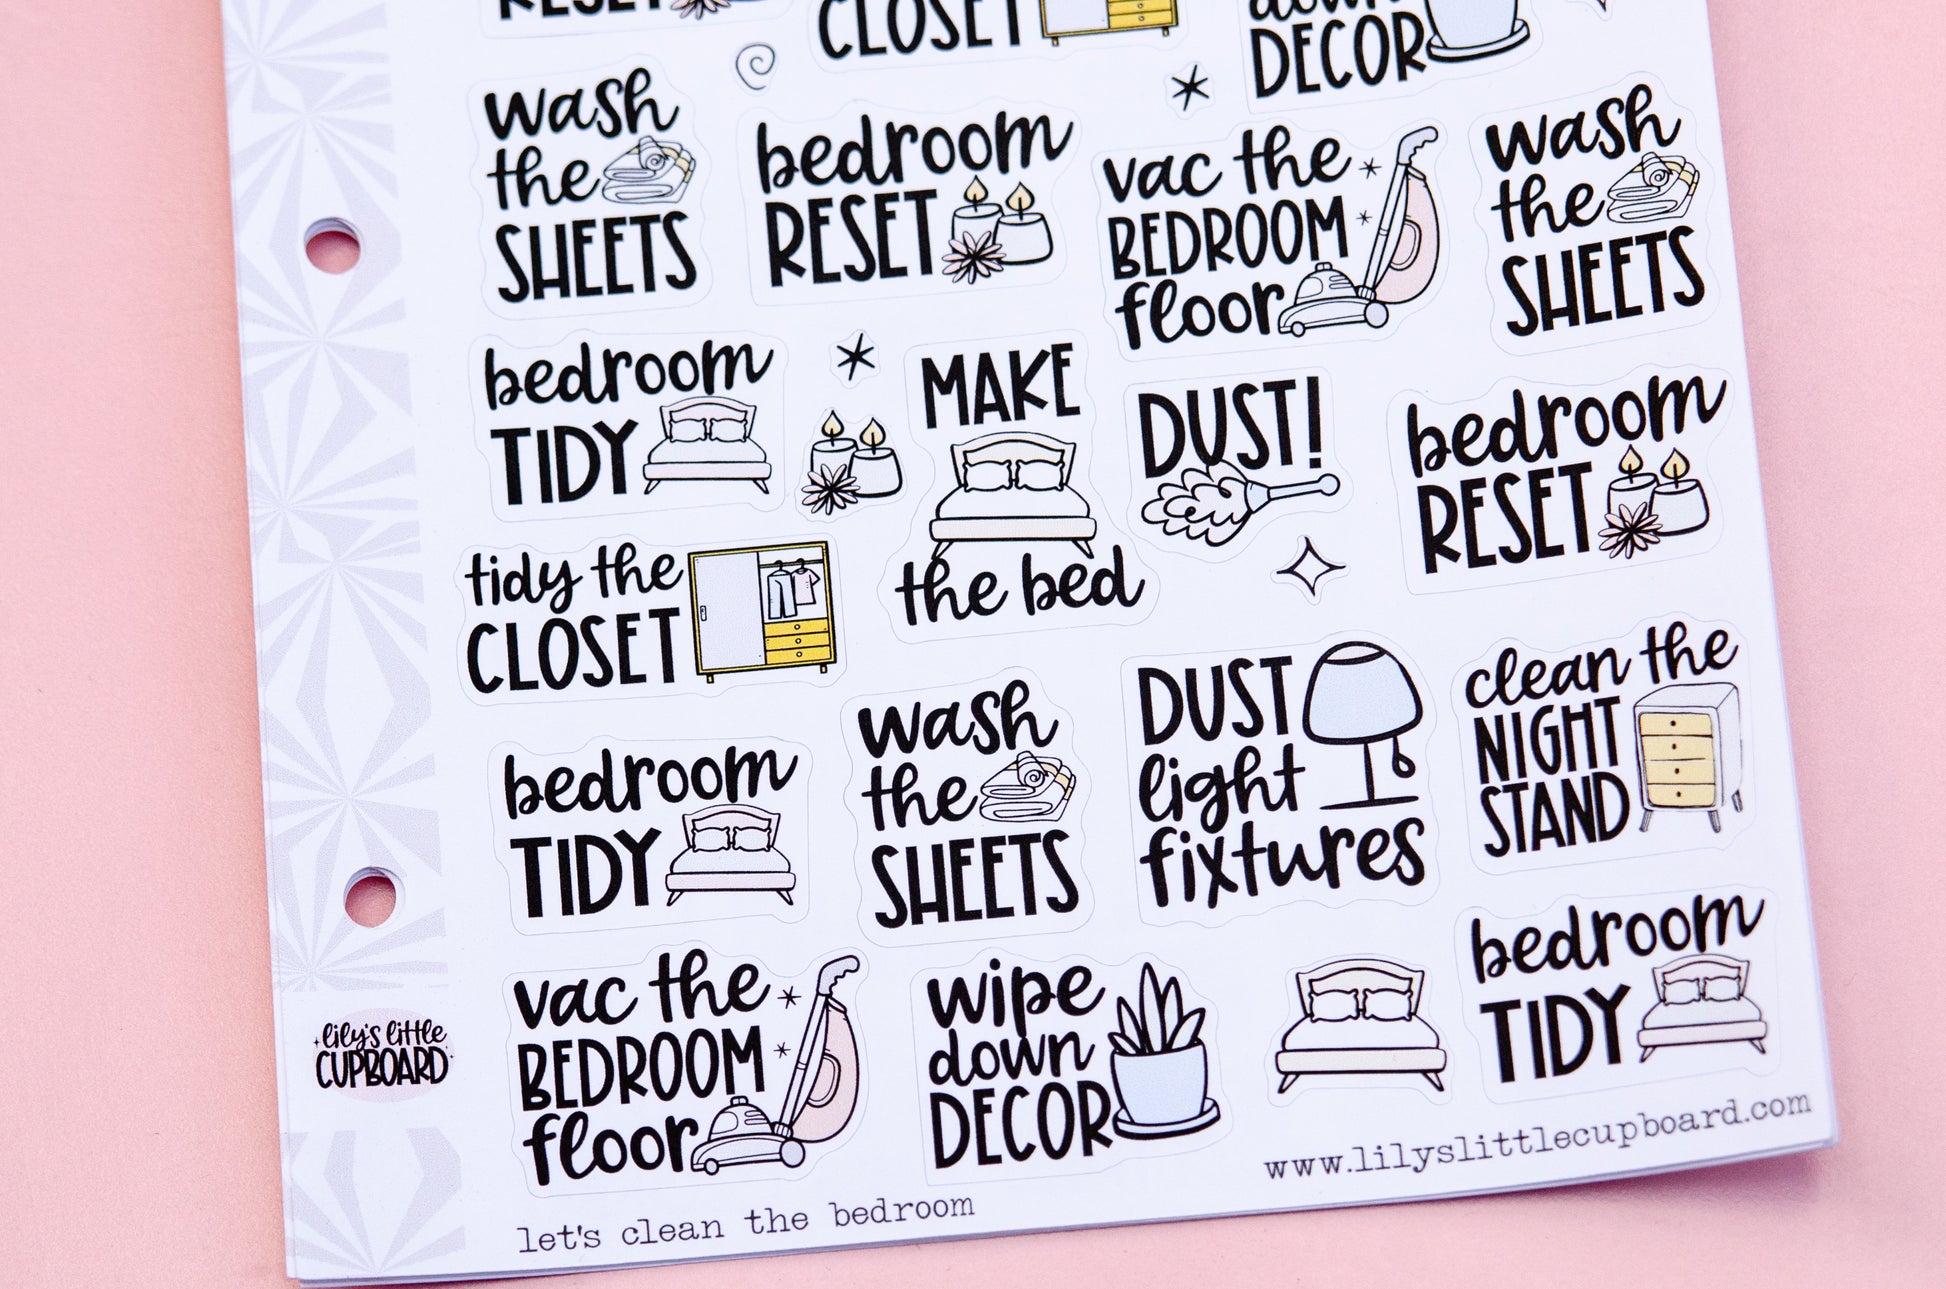 RESET
CLOSET
down
DECOR
wash
the
SHEETS
bedroom
RESET
vac the
BEDROOM
floor
wash
the
SHEETS
bedroom
TIDY
MAKE
the bed
DUST!
bedroom
RESET
tidy the
CLOSET
bedroom
TIDY
wash
the
SHEETS
DUST
light
fixtures
clean the
NIGHT
STAND
vac the
BEDROOM
floor
wipe
down
DECOR
bedroom
TIDY
lily's little
CUPBOARD
www.lilyslittlecupboard.com
let's clean the bedroom